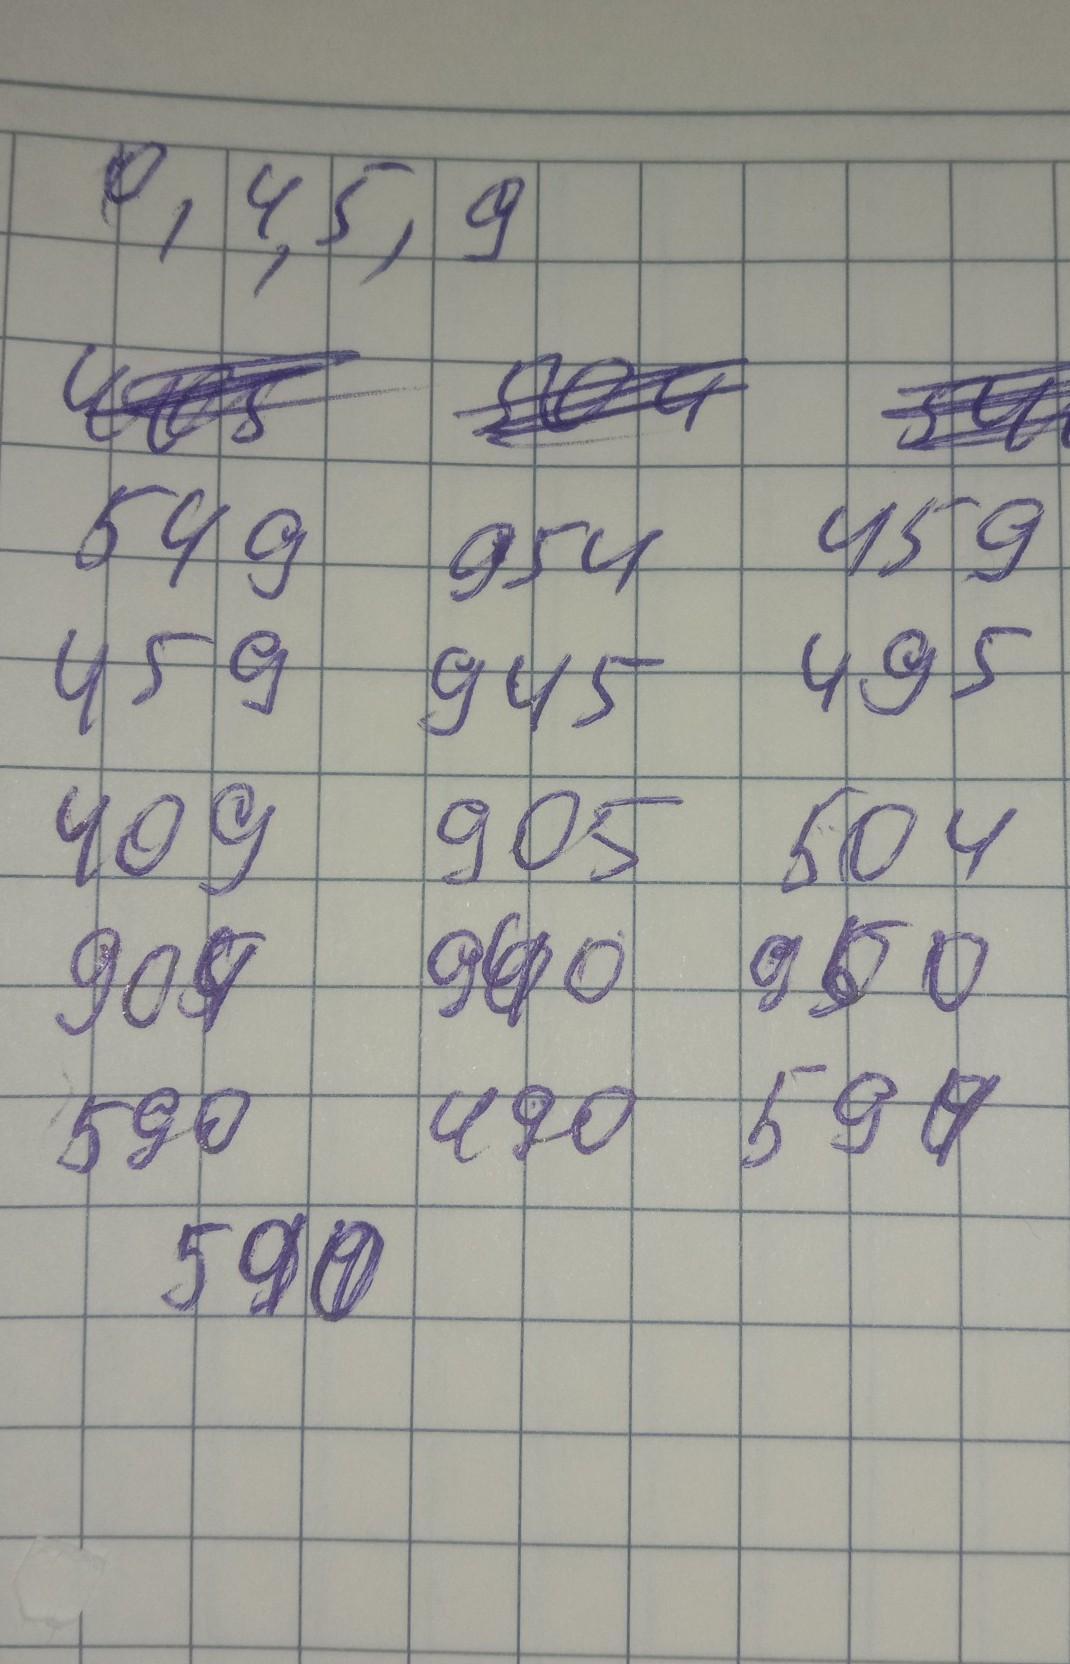 0, 4, 5, 9
549 954 459
459 945 495
409 905 504
904 940 950
590 490 594